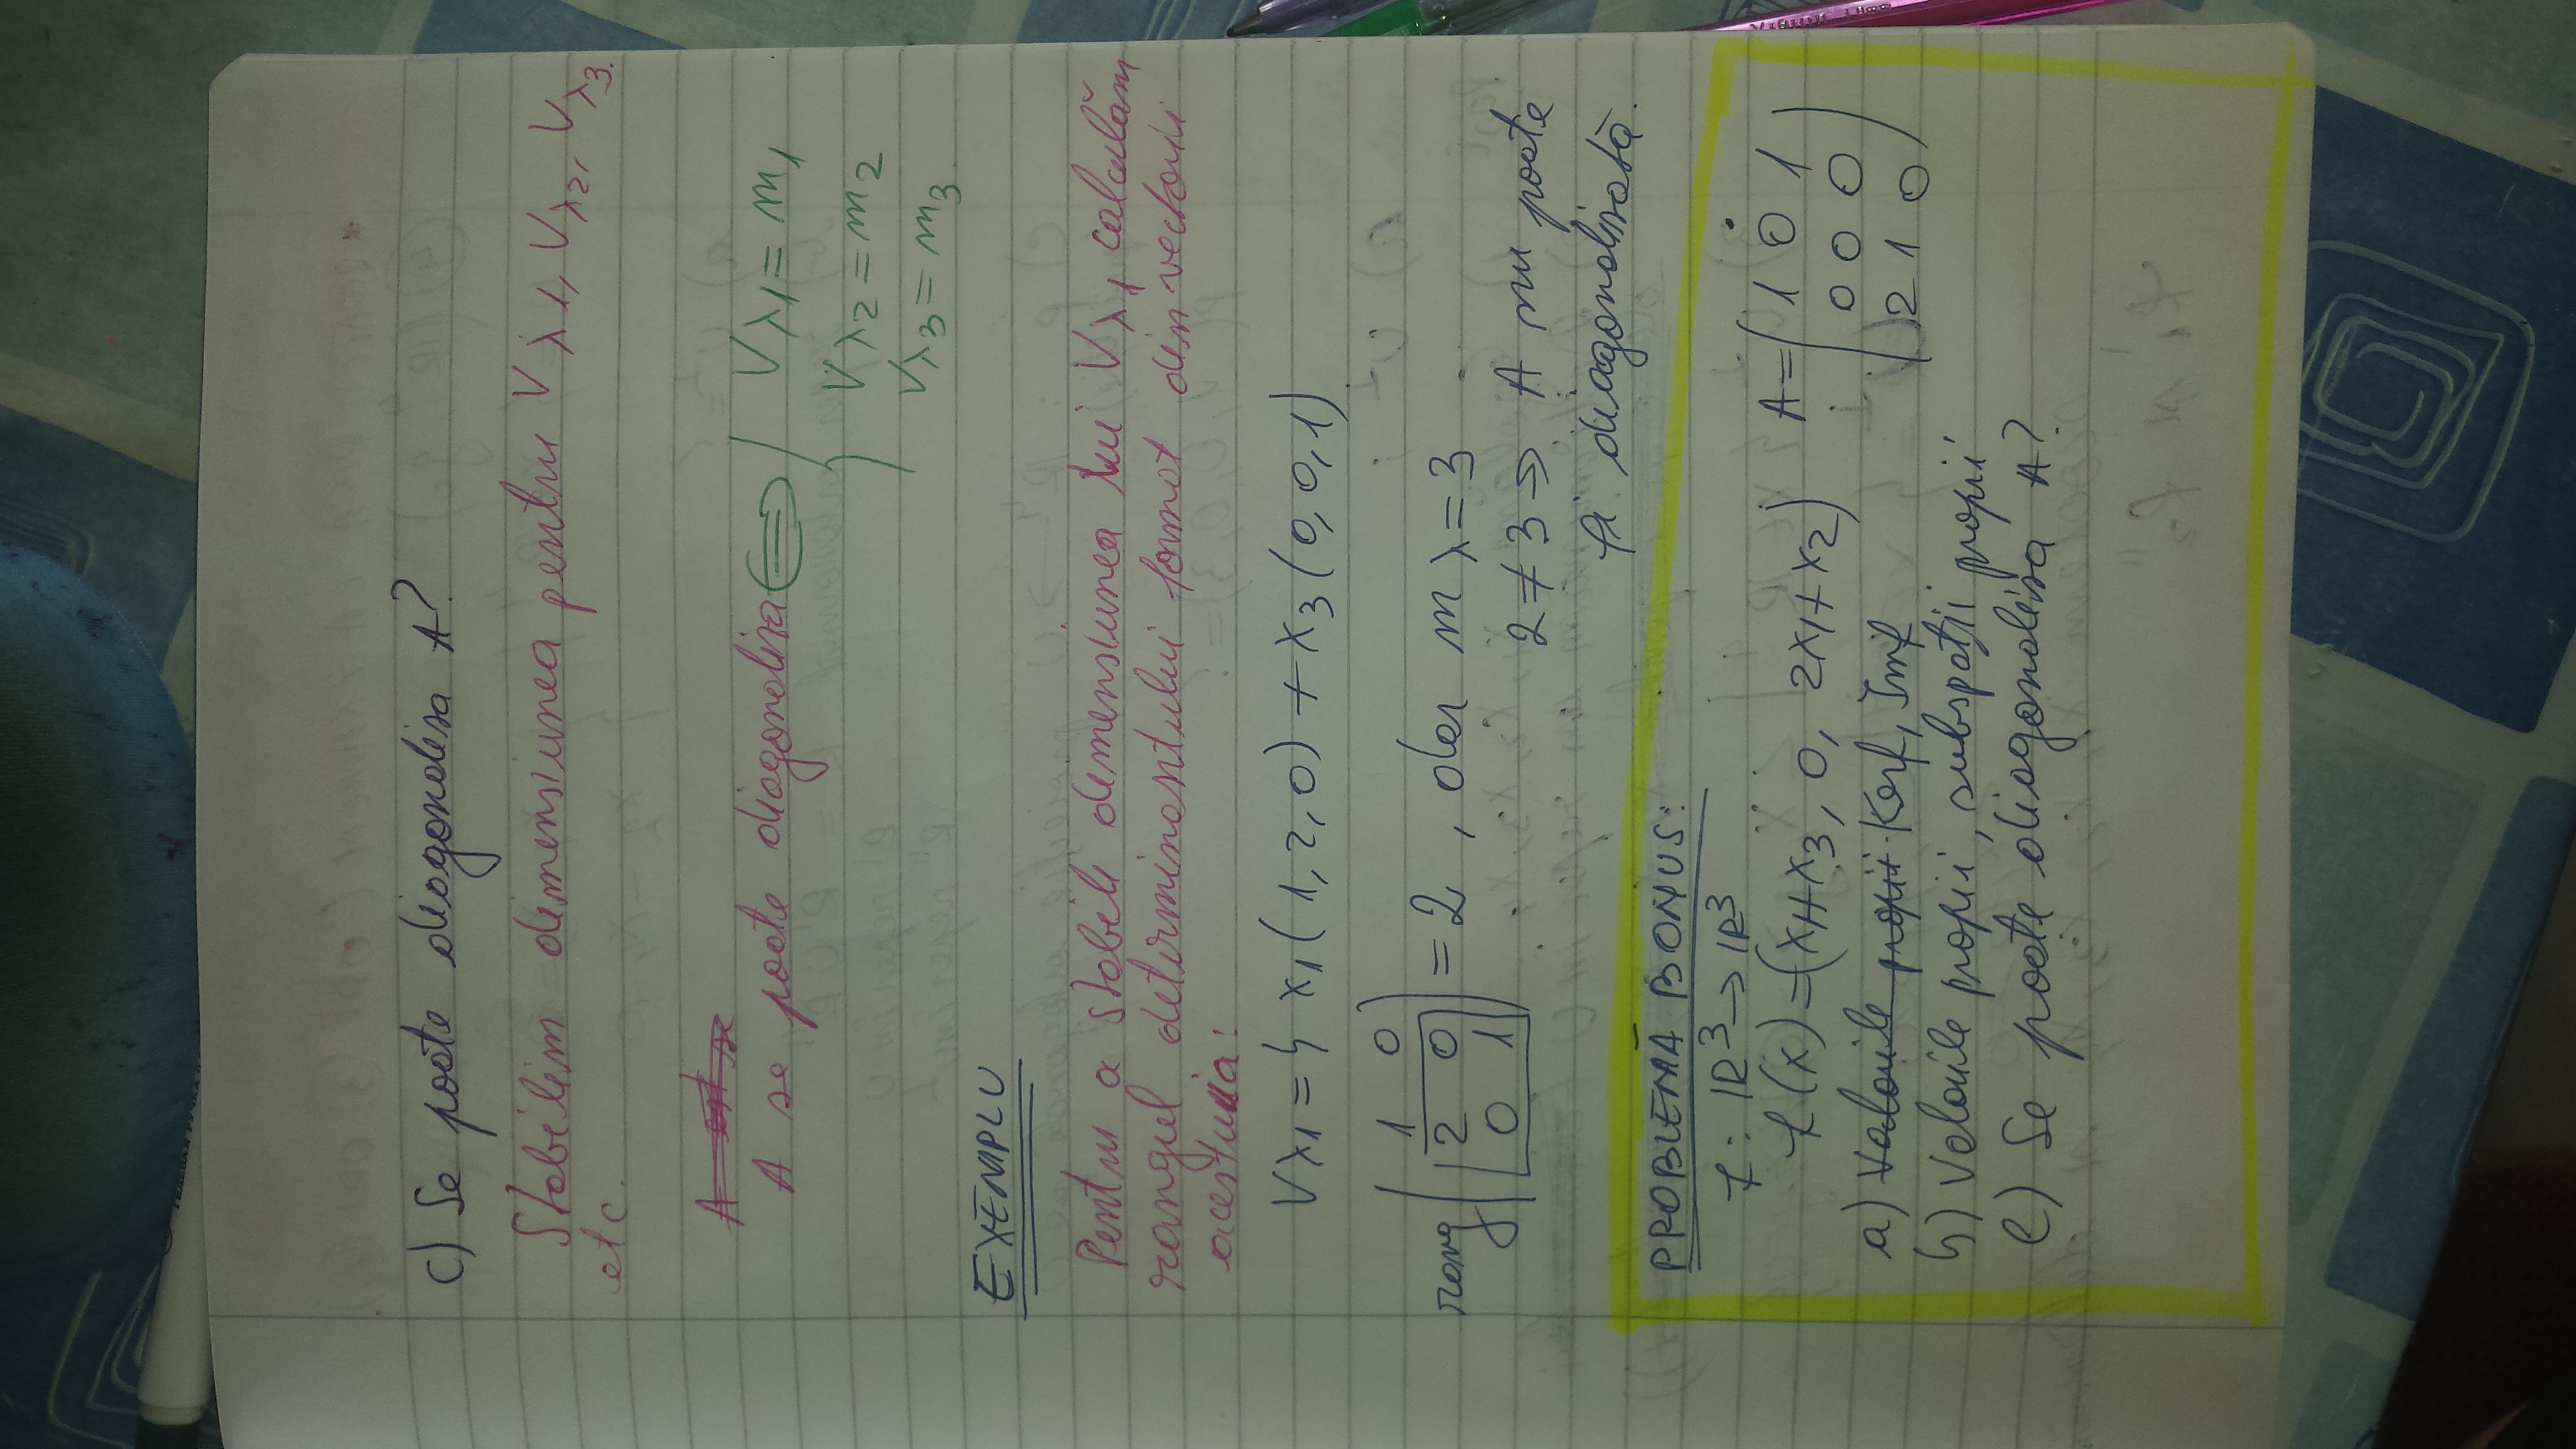 c) Se poate diagonaliza A?
Stabilim dimensiunea pentru Vλ1, Vλ2, Vλ3.
etc.
A est se
A se poate diagonaliza ⟺ { Vλ1 = m1
Vλ2 = m2
Vλ3 = m3
EXEMPLU
Pentru a stabili dimensiunea lui Vλ1 calculăm
rangul determinantului format din vectorii
acestuia:
Vλ1 = { x1(1,2,0) + x3(0,0,1)
1 0
rang ( 2 0 ) = 2 , dar mλ = 3
0 1
2 ≠ 3 => A nu poate
fi diagonalizată.
PROBLEMĂ BONUS:
f: IR³ → IR³
f(x) = (x1+x3, 0, 2x1+x2) A = ( 1 0 1
0 0 0
2 1 0 )
a) Valorile proprii Kerf, Imf
b) Valorile proprii, subspații proprii
c) Se poate diagonaliza A?